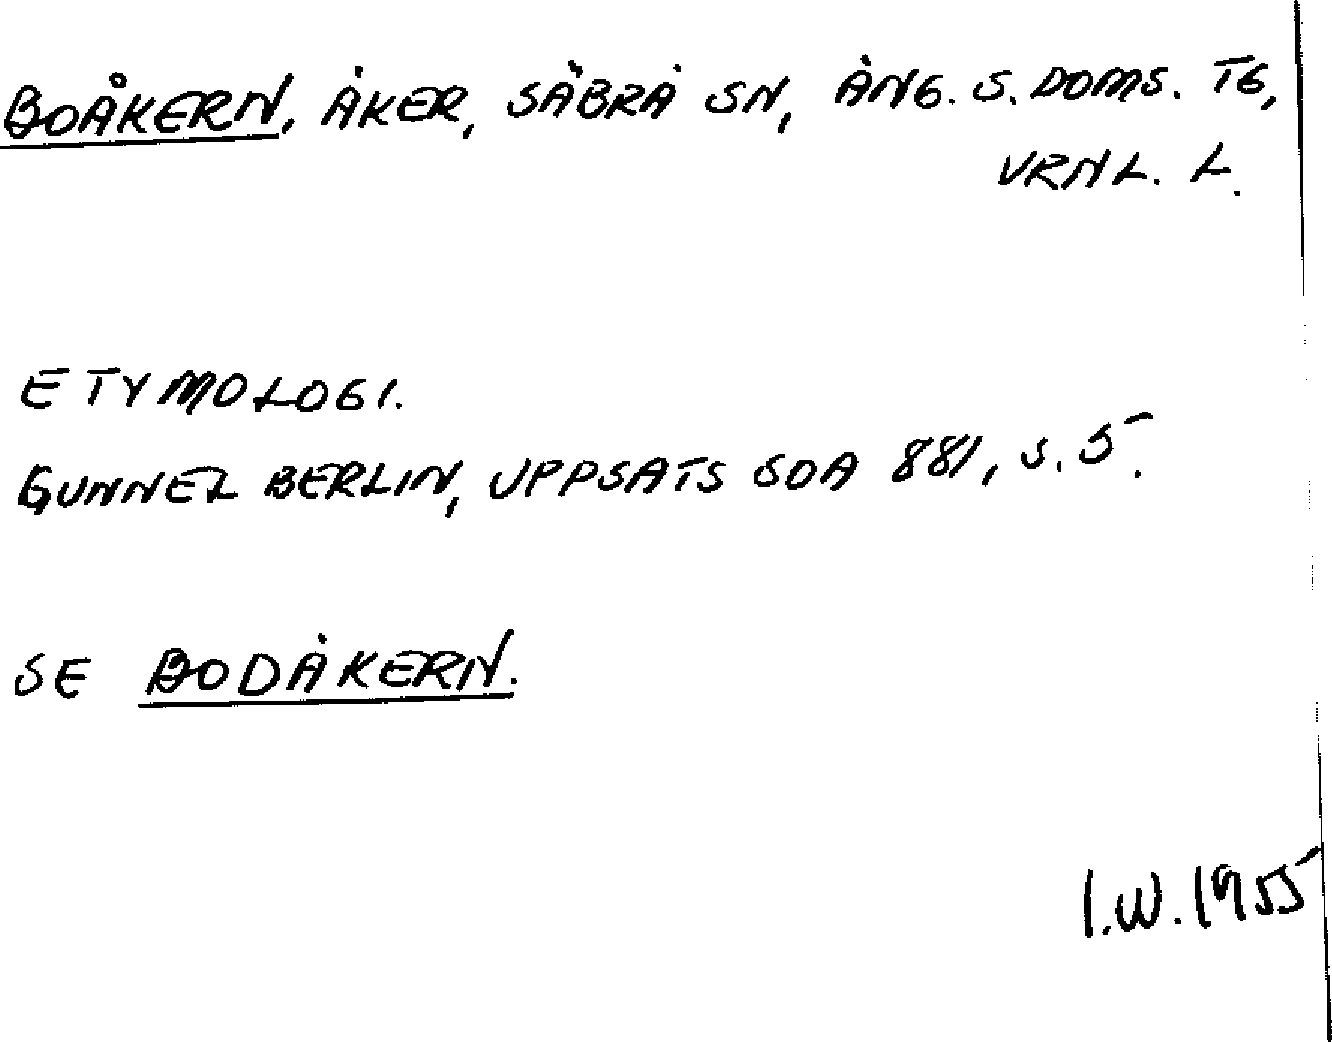 BOÅKERN, ÅKER, SÄBRÅ SN, ÅNG. S. DOMS. TG,
VRNL. L.
ETYMOLOGI.
GUNNEL BERLIN, UPPSATS SOA 881, S. 5.
SE BODÅKERN.
I.W. 1955